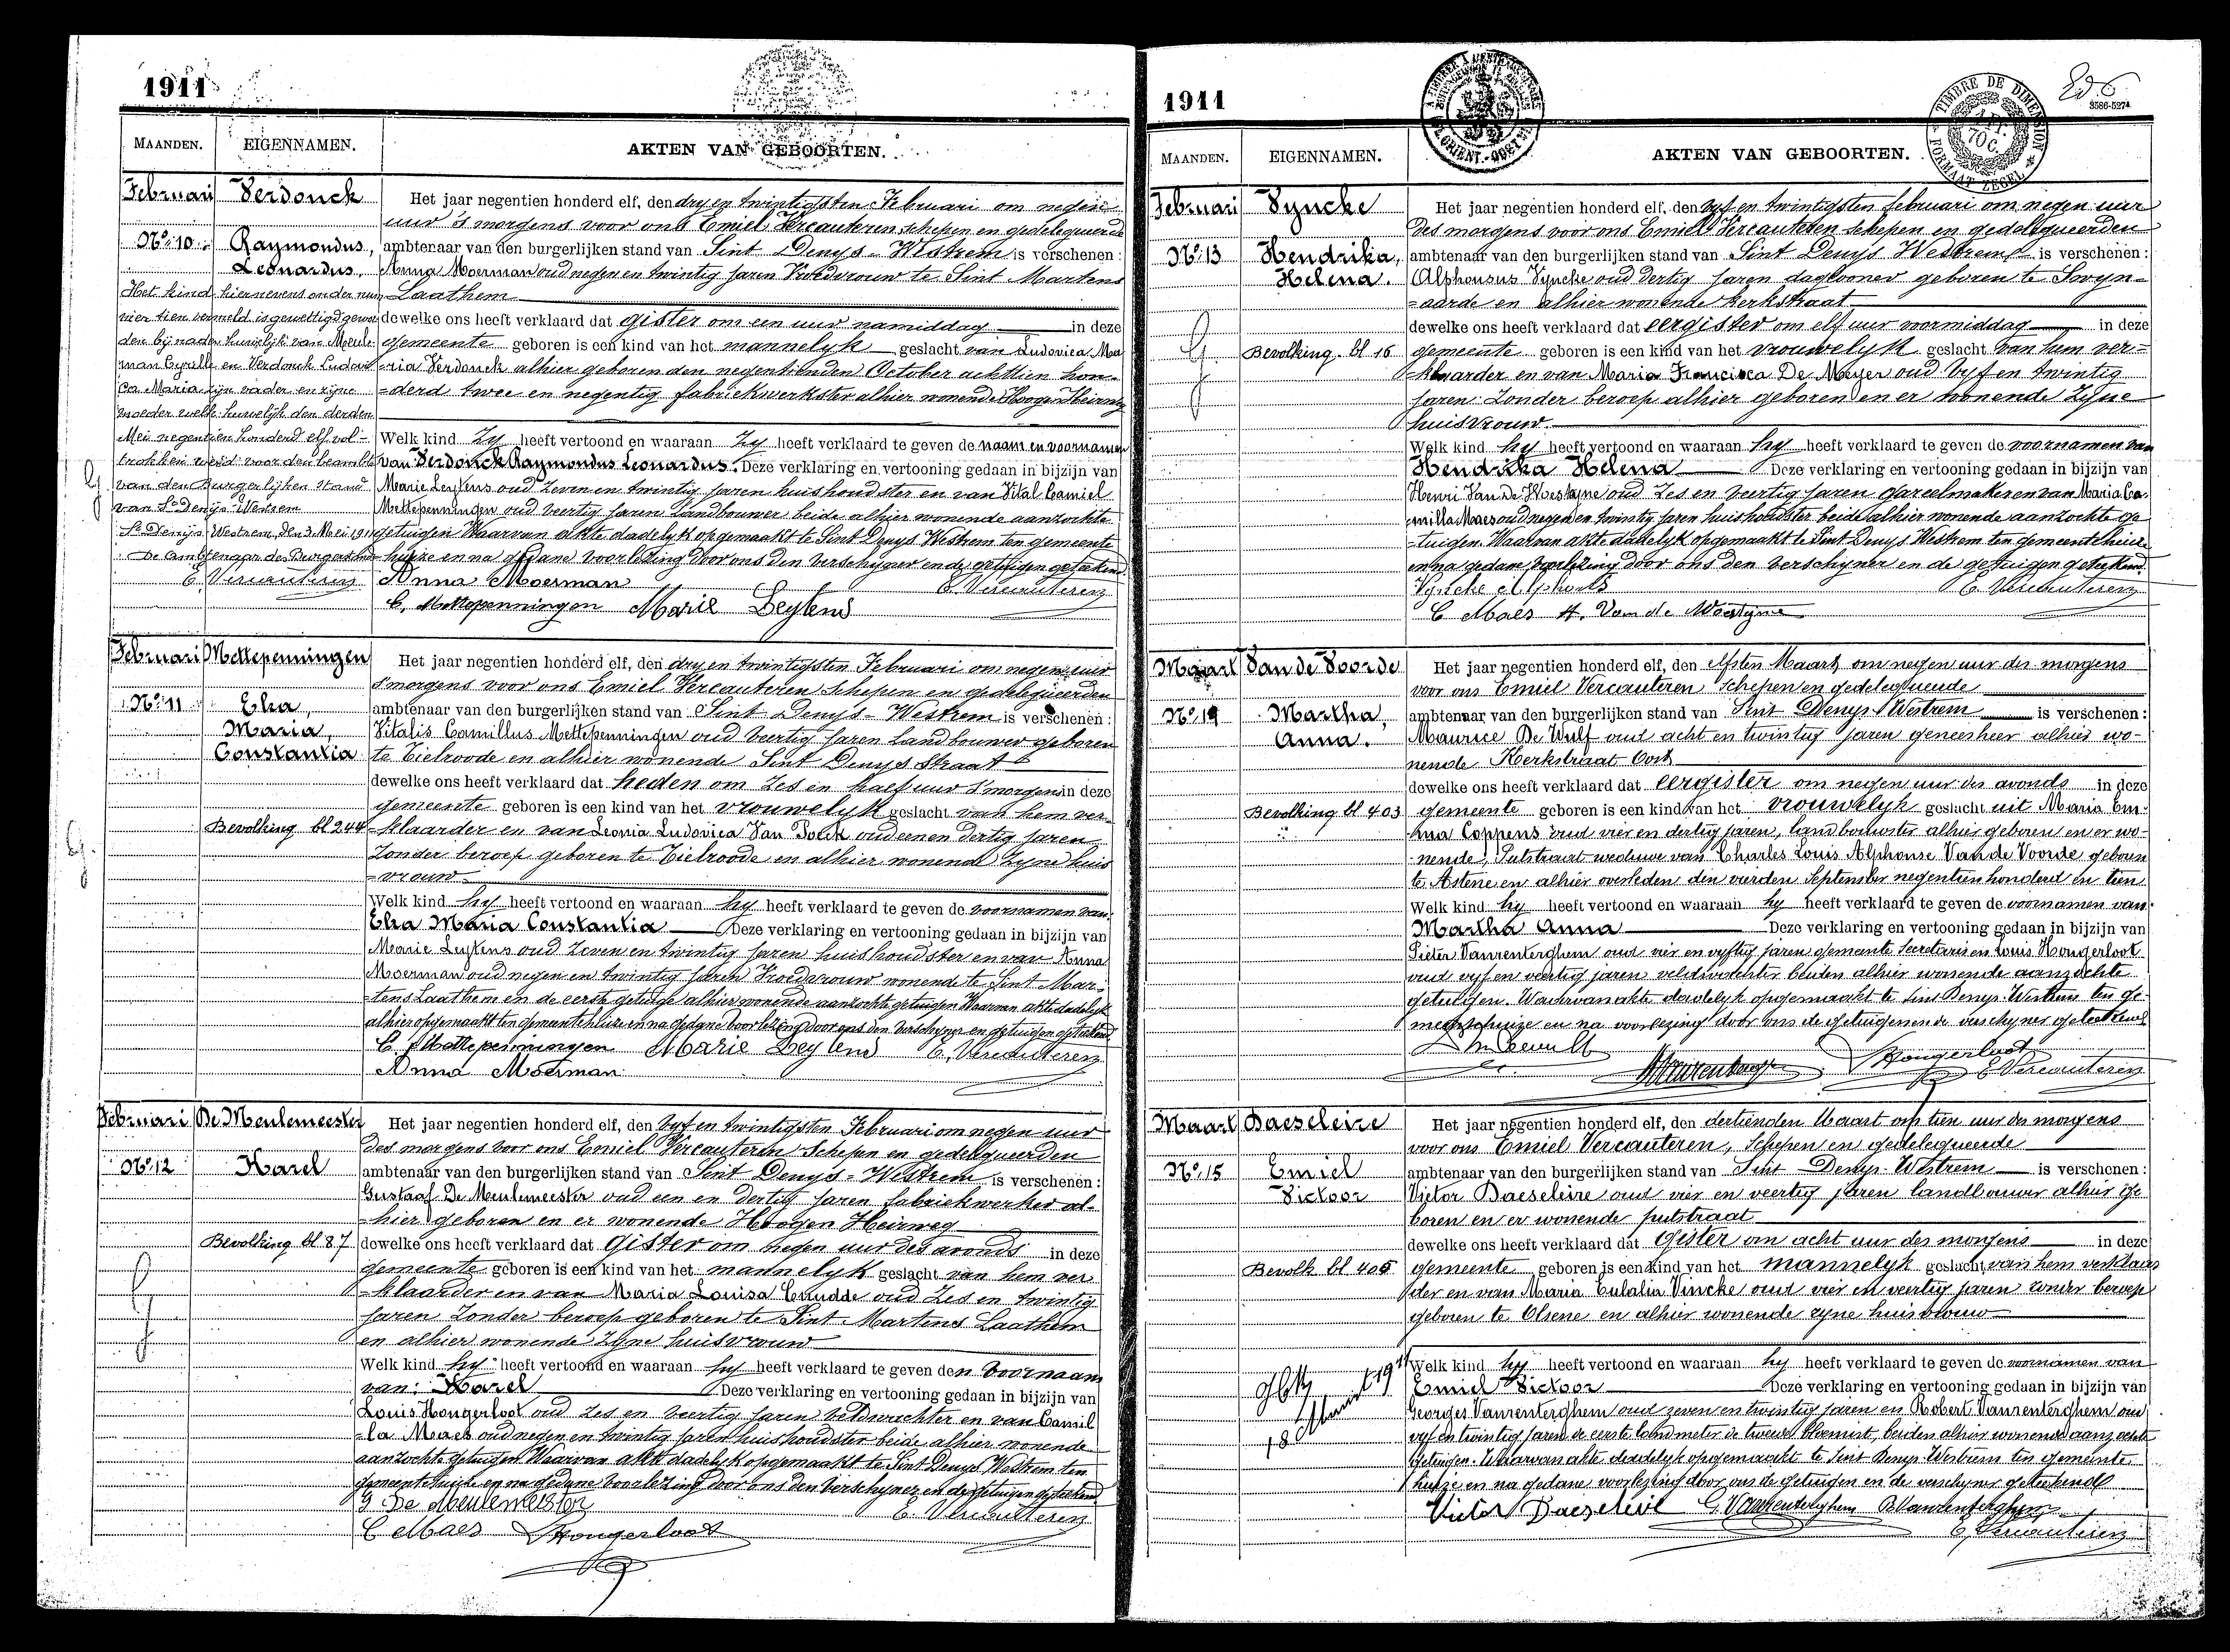 1911
MAANDEN. EIGENNAMEN. AKTEN VAN GEBOORTEN.
Februari Verdonck
No. 10. Raymondus,
Leonardus.
Het kind hiernevens onder num
vier tien vermeld is gewettigd gewor
den bij nader huwelijk van Meule
man Cyrille en Verdonck Ludovi
ca Maria zijn vader en zijne
moeder welk huwelijk den derden
Mei negentien honderd elf vol-
trokken werd voor den beambte
van den Burgerlijken stand
van St Denijs Westrem
St Denijs Westrem, den 3 Mei 1911
De Ambtenaar des Burg. stands
E. Vercauteren
Het jaar negentien honderd elf, den dry en twintigsten Februari om negen
uur 's morgens voor ons Emiel Vercauteren schepen en gedelegueerde
ambtenaar van den burgerlijken stand van Sint Denys-Westrem is verschenen:
Anna Moerman oud negen en twintig jaren Vroedvrouw te Sint Martens
Laathem
dewelke ons heeft verklaard dat gister om een uur namiddag in deze
gemeente geboren is een kind van het mannelyk geslacht van Ludovica Ma
ria Verdonck alhier geboren den negentienden October achttien hon-
=derd twee en negentig fabriekwerkster alhier wonende Hooge Heirweg
Welk kind Zy heeft vertoond en waaraan Zy heeft verklaard te geven de naam en voornamen
van Verdonck Raymondus Leonardus. Deze verklaring en vertooning gedaan in bijzijn van
Marie Leytens oud Zeven en twintig jaren huishoudster en van Vital Camiel
Mettepenningen oud veertig jaren Landbouwer beide alhier wonende aanzochte
getuigen Waarvan akte dadelyk opgemaakt te Sint Denys Westrem ten gemeente
huize en na gedane voorlezing door ons den verschyner en de getuigen geteekend.
Anna Moerman E. Vercauteren
C. Mettepenningen Marie Leytens
Februari Mettepenningen
No. 11 Elza,
Maria,
Constantia
Bevolking bl 244
Het jaar negentien honderd elf, den dry en twintigsten Februari om negen uur
s'morgens voor ons Emiel Vercauteren schepen en gedelegueerden
ambtenaar van den burgerlijken stand van Sint Denys-Westrem is verschenen:
Vitalis Camillus Mettepenningen oud veertig jaren Landbouwer geboren
te Tielroode en alhier wonende Sint Denys straat
dewelke ons heeft verklaard dat heden om Zes en half uur s'morgens in deze
gemeente geboren is een kind van het vrouwelyk geslacht van hem ver
=klaarder en van Leonia Ludovica Van Polck oud een en dertig jaren
Zonder beroep geboren te Tielroode en alhier wonende Zyne huis
=vrouw
Welk kind hy heeft vertoond en waaraan hy heeft verklaard te geven de voornamen van
Elza Maria Constantia Deze verklaring en vertooning gedaan in bijzijn van
Marie Leytens oud Zeven en twintig jaren huishoudster en van Anna
Moerman oud negen en twintig jaren Vroedvrouw wonende te Sint Mar-
=tens Laathem en de eerste getuige alhier wonende aanzochte getuigen Waarvan akte dadelyk
alhier opgemaakt ten gemeentehuize en na gedane voorlezing door ons den verschyner en getuigen geteekend
C. Mettepenningen Marie Leytens E. Vercauteren
Anna Moerman
Februari De Meulemeester
No. 12 Karel
Bevolking bl 87
Het jaar negentien honderd elf, den vyf en twintigsten Februari om negen uur
des morgens voor ons Emiel Vercauteren Schepen en gedelegueerden
ambtenaar van den burgerlijken stand van Sint Denys-Westrem is verschenen:
Gustaaf De Meulemeester oud een en dertig jaren fabriekwerker al-
=hier geboren en er wonende Hoogen Heirweg
dewelke ons heeft verklaard dat Gister om negen uur des avonds in deze
gemeente geboren is een kind van het mannelyk geslacht van hem ver
=klaarder en van Maria Louisa Cnudde oud Zes en twintig
jaren Zonder beroep geboren te Sint Martens Laathem
en alhier wonende Zyne huisvrouw
Welk kind hy heeft vertoond en waaraan hy heeft verklaard te geven den Voornaam
van: Karel Deze verklaring en vertooning gedaan in bijzijn van
Louis Hongerloot oud Zes en veertig jaren Veldwachter en van Camil
=la Maes oud negen en twintig jaren huishoudster beide alhier wonende
aanzochte getuigen Waarvan akte dadelyk opgemaakt te Sint Denys Westrem ten
gemeentehuize en na gedane voorlezing door ons den verschyner en de getuigen geteekend
G. De Meulemeester E. Vercauteren
C Maes Hongerloot
1911
TIMBRE DE DIMENSION
FORMAAT ZEGEL
70 C.
3586-5274
MAANDEN. EIGENNAMEN. AKTEN VAN GEBOORTEN.
Februari Vyncke
No. 13 Hendrika,
Helena.
Bevolking. bl 16
Het jaar negentien honderd elf, den vyf en twintigsten februari om negen uur
des morgens voor ons Emiel Vercauteren schepen en gedelegueerden
ambtenaar van den burgerlijken stand van Sint Denys Westrem is verschenen:
Alphonsus Vyncke oud dertig jaren daglooner geboren te Swyn-
=aarde en alhier wonende Kerkstraat
dewelke ons heeft verklaard dat eergister om elf uur voormiddag in deze
gemeente geboren is een kind van het vrouwelyk geslacht van hem ver=
=klaarder en van Maria Francisca De Meyer oud vyf en twintig
jaren Zonder beroep alhier geboren en er wonende Zyne
huisvrouw
Welk kind hy heeft vertoond en waaraan hy heeft verklaard te geven de voornamen van
Hendrika Helena Deze verklaring en vertooning gedaan in bijzijn van
Henri Van De Woestyne oud Zes en veertig jaren gareelmaker en van Maria Ca-
=milla Maes oud negen en twintig jaren huishoudster beide alhier wonende aanzochte ge
=tuigen. Waarvan akte dadelyk opgemaakt te Sint Denys Westrem ten gemeentehuize
en na gedane voorlezing door ons den verschyner en de getuigen geteekend.
Vyncke Alphonts E. Vercauteren
C Maes H. Van de Woestyne
Maart Van de Voorde
No. 14 Martha,
Anna.
Bevolking bl 403
Het jaar negentien honderd elf, den elfsten Maart om negen uur des morgens
voor ons Emiel Vercauteren schepen en gedelegueerde
ambtenaar van den burgerlijken stand van Sint Denys Westrem is verschenen:
Maurice De Wulf oud acht en twintig jaren geneesheer alhier wo-
nende Kerkstraat Oost
dewelke ons heeft verklaard dat eergister om negen uur des avonds in deze
gemeente geboren is een kind van het vrouwelyk geslacht uit Maria Em-
ma Coppens oud vier en dertig jaren, landbouwster alhier geboren en er wo-
nende, Putstraat weduwe van Charles Louis Alphonse Van de Voorde geboren
te Astene en alhier overleden den vierden September negentien honderd en tien
Welk kind hy heeft vertoond en waaraan hy heeft verklaard te geven de voornamen van
Martha Anna Deze verklaring en vertooning gedaan in bijzijn van
Pieter Vanrenterghem oud vier en vyftig jaren gemeente secretaris en Louis Hongerloot
oud vyf en veertig jaren veldwachter beiden alhier wonende aanzochte
getuigen. Waarvan akte dadelyk opgemaakt te Sint Denys-Westrem ten ge-
meentehuize en na voorlezing door ons de getuigen en de verschyner geteekend
M. Dewulf Vanrenterghem Hongerloot
E. Vercauteren
Maart Daeseleire
No. 15 Emiel
Victoor
Bevolk bl 405
Het jaar negentien honderd elf, den dertienden Maart om tien uur des morgens
voor ons Emiel Vercauteren, schepen en gedelegueerde
ambtenaar van den burgerlijken stand van Sint Denys-Westrem is verschenen:
Victor Daeseleire oud vier en veertig jaren landbouwer alhier ge
boren en er wonende putstraat
dewelke ons heeft verklaard dat Gister om acht uur des morgens in deze
gemeente geboren is een kind van het mannelyk geslacht van hem verklaar
der en van Maria Eulalia Vincke oud vier en veertig jaren zonder beroep
geboren te Olsene en alhier wonende zyne huisvrouw
Welk kind hy heeft vertoond en waaraan hy heeft verklaard te geven de voornamen van
Emiel Victoor Deze verklaring en vertooning gedaan in bijzijn van
Georges Vanrenterghem oud zeven en twintig jaren en Robert Vanrenterghem oud
vyf en twintig jaren de eerste landmeter de tweede bloemist, beiden alhier wonende aanzochte
getuigen. Waarvan akte dadelyk opgemaakt te Sint Denys-Westrem ten gemeente
huize en na gedane voorlezing door ons de getuigen en de verschyner geteekend
Victor Daeseleire G. Vanrenterghem R. Vanrenterghem
E. Vercauteren